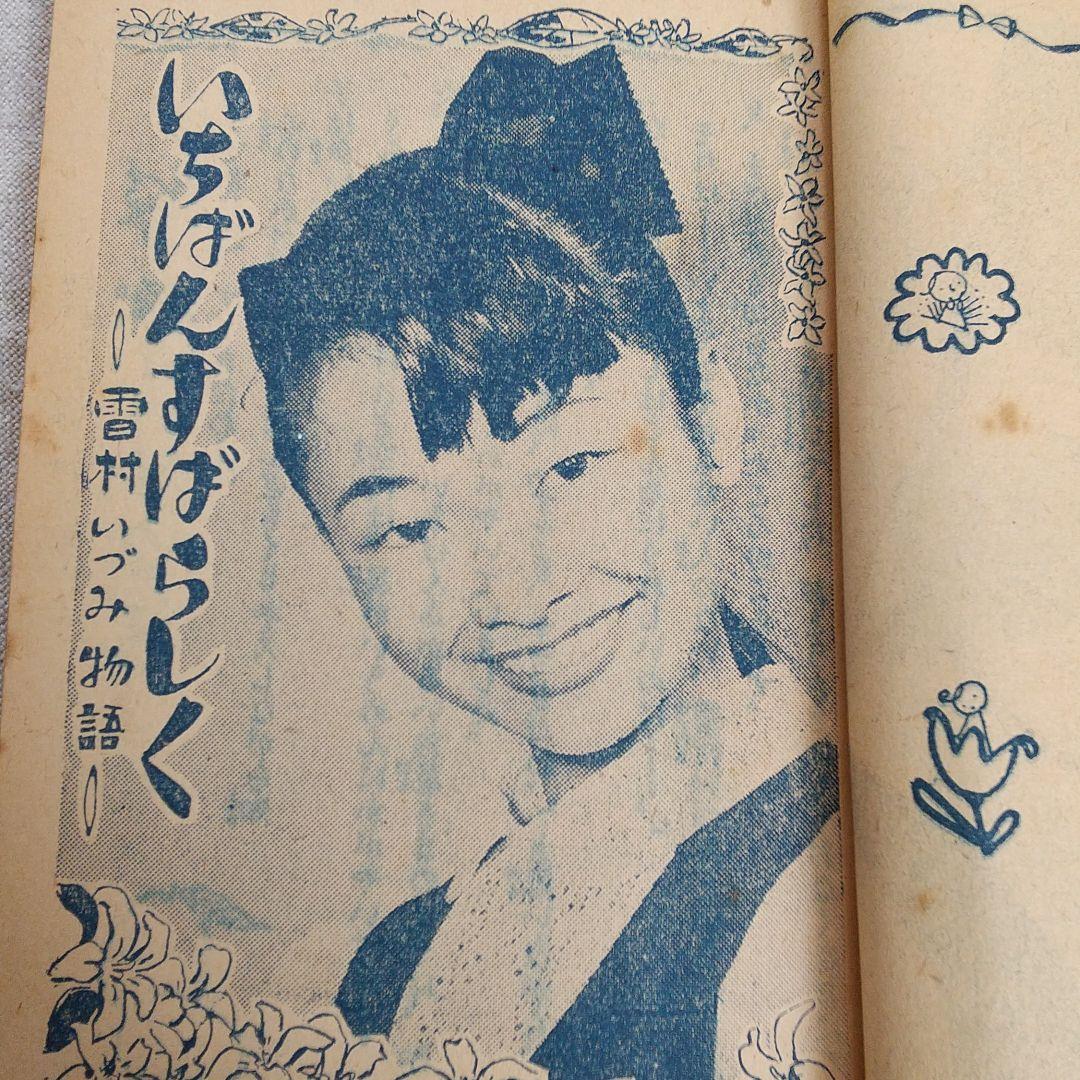 いちばんすばらしく
―雪村いづみ物語―